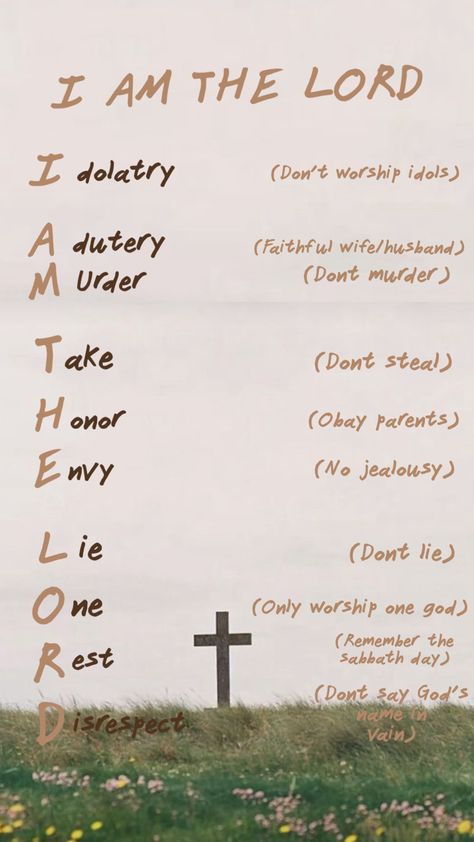 I AM THE LORD
Idolatry (Don't worship idols)
Adutery (Faithful wife/husband)
MUrder (Dont murder)
Take (Dont steal)
Honor (Obay parents)
Envy (No jealousy)
Lie (Dont lie)
One (Only worship one god)
Rest (Remember the
sabbath day)
Disrespect (Dont say God's
name in
vain)